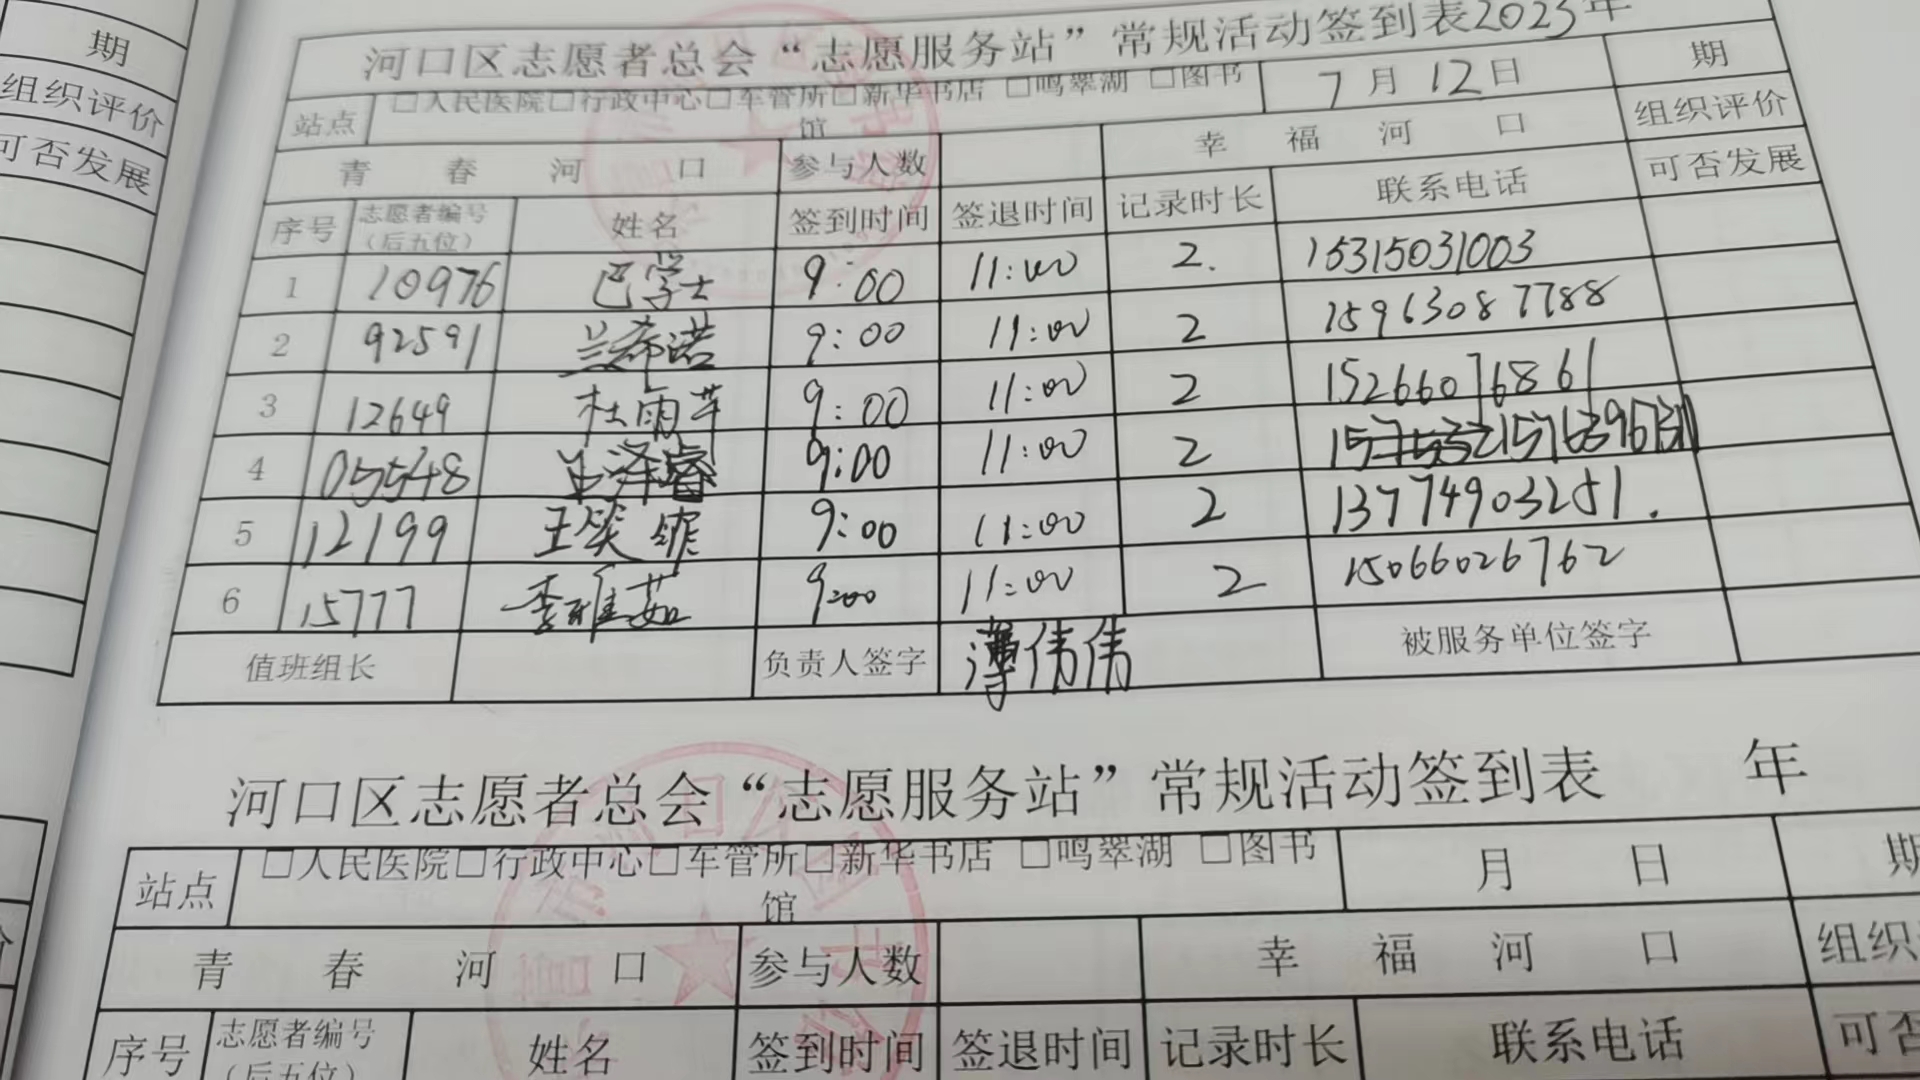 期
组织评价
可否发展
河口区志愿者总会“志愿服务站”常规活动签到表2023年
站点 □人民医院□行政中心□车管所□新华书店 □鸣翠湖 □图书馆 7月12日 期
青春河口 参与人数 幸福河口 组织评价
序号 志愿者编号（后五位） 姓名 签到时间 签退时间 记录时长 联系电话 可否发展
1 10976 巴学士 9:00 11:00 2. 15315031003
2 92591 兰希诺 9:00 11:00 2 15963087788
3 12649 杜雨芊 9:00 11:00 2 15266076861
4 05548 泽睿 9:00 11:00 2
5 12199 王笑 9:00 11:00 2 13774903251.
6 15777 李雅茹 9:00 11:00 2 15066026762
值班组长 负责人签字 薄伟伟 被服务单位签字
河口区志愿者总会“志愿服务站”常规活动签到表 年
站点 □人民医院□行政中心□车管所□新华书店 □鸣翠湖 □图书馆 月 日 期
青春河口 参与人数 幸福河口 组织
序号 志愿者编号（后五位） 姓名 签到时间 签退时间 记录时长 联系电话 可否